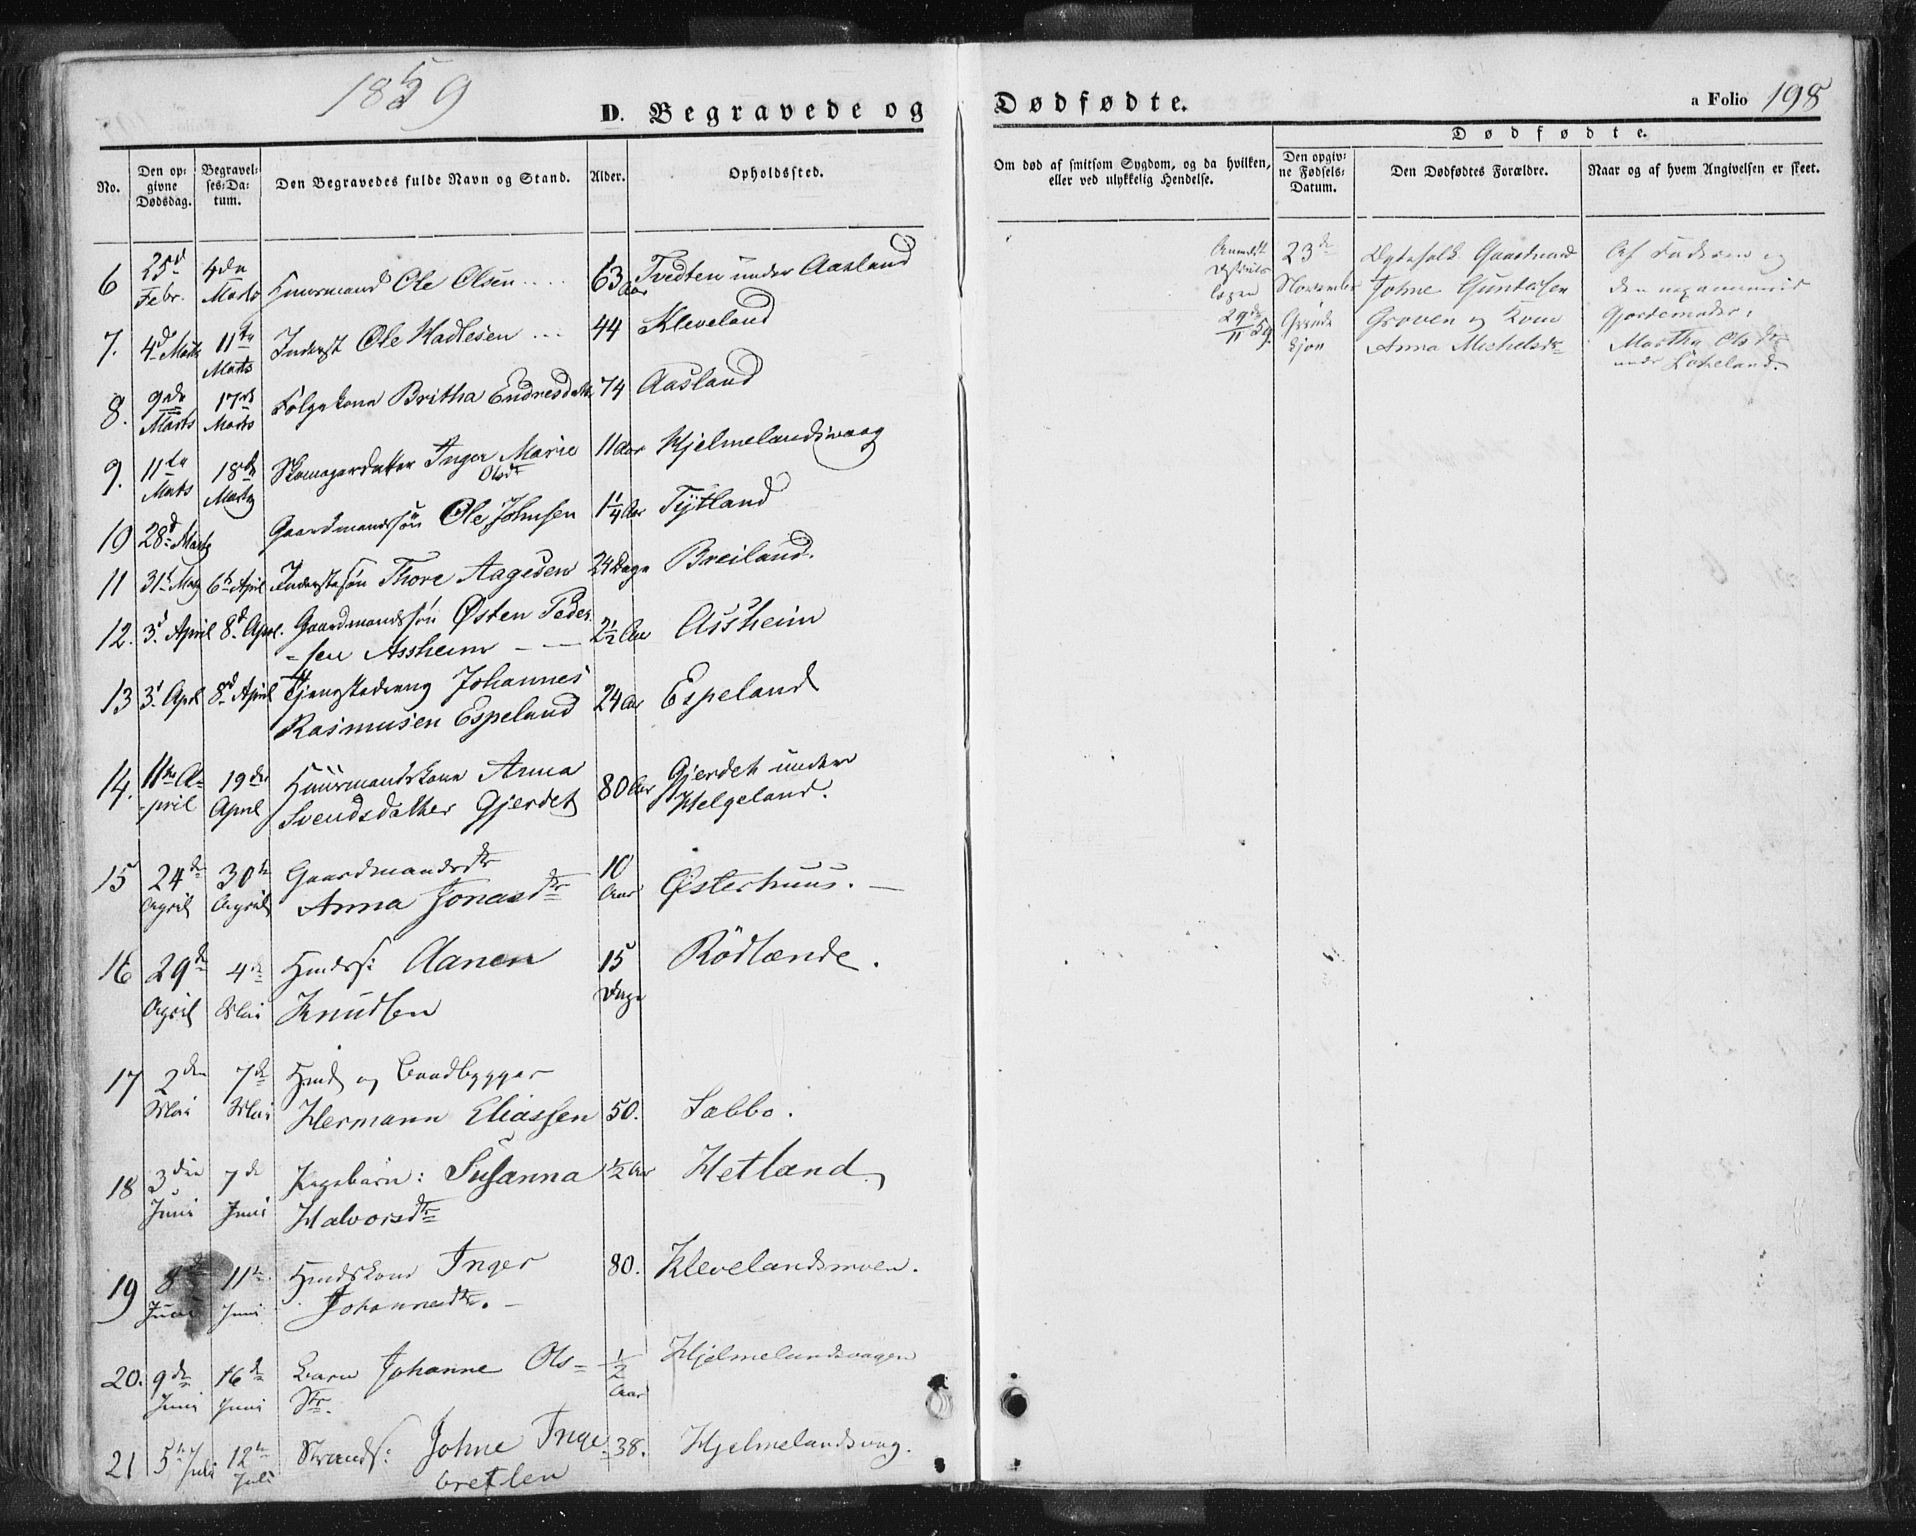 1859
D. Begravede og Dødfødte.
a Folio 198
No.
Den opgivne Dødsdag.
Begravelses-Datum.
Den Begravedes fulde Navn og Stand.
Alder.
Opholdssted.
Om død af smitsom Sygdom, og da hvilken, eller ved ulykkelig Hendelse.
Dødfødte.
Den opgivne Fødsels-Datum.
Den Dødfødtes Forældre.
Naar og af hvem Angivelsen er skeet.
6 25d Febr. 4de Marts Huusmand Ole Olsen .... 63 Aar Tvedten under Aasland
7. 4d Marts 11te Marts Inderst Ole Hadlesen ... 44 Kleveland
8. 9de Marts 17de Marts Følgekone Britha Endresdatter 74 Aasland
9. 11te Marts 18de Marts Skomagerdatter Inger Marie Olsdr 11 Aar Hjelmelandsvaag
10 28d Marts Gaardmandssøn Ole Johnsen 1 1/4 Aar Tytland
11 31t Marts 6t April Inderstesøn Thore Aagesen 24 Dage Breiland.
12. 3d April 8d April. Gaardmandssøn Østen Peder-
sen Assheim - - 2 1/2 Aar Assheim
13 3d April 8d April Tjenestedreng Johannes
Rasmusen Espeland 24 Aar Espeland
14. 11te A-
pril 19de April Huusmandskone Anna
Svendsdatter Gjerdet 80 Aar Gjerdet under
Helgeland.
15 24de April 30te April Gaardmandsdr
Anna Jonasdr 10 Aar Østerhuus. -
16 29de April 4de Mai Hmdss: Aanen
Knudsen 15 Dage Rødlænde.
17 2den Mai 7de Mai Hmd og Baadbygger
Hermann Eliassen 50. Sabbo.
18 3die Juni 7de Juni Susanna
Halvorsdr 1/2 Aar Hetland
19 8de Juni 11te Juni Hmdskone Inger
Johannesdr. - 80. Klevelandsmoen.
20. 9de Juni 16de Juni Barn Johanne Ols-
dr. 1/2 Aar Hjelmelandsvaagen
21 5te Juli 12te Juli Strands: Johne Inge
bretsen 38. Hjelmelandsvaag.
29/11 59.
23de November
Ægtefolk Gaardmand
Johne Guntersen
Groven og Kone
Anna Michelsdr
Af Faderen og
den
Gjordemoder,
Martha Olsdr
under Lokeland.